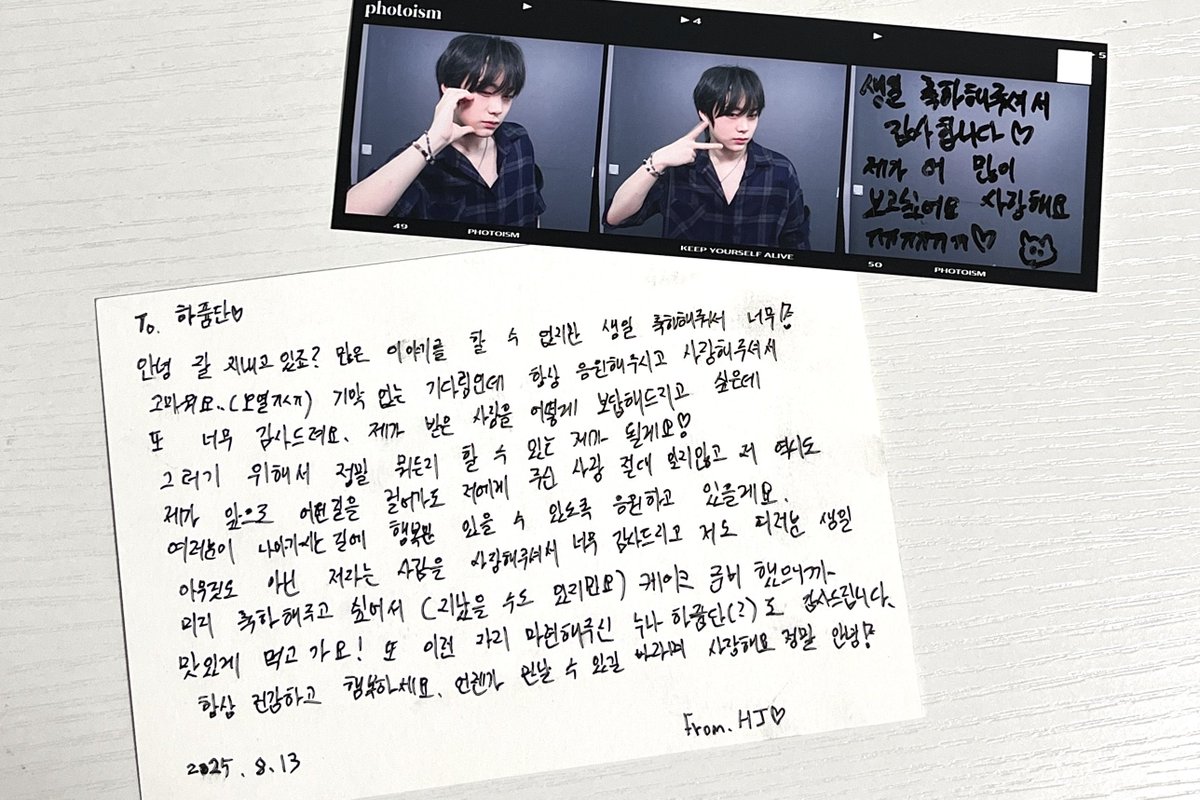 photoism
4
5
생일 축하해주셔서
감사합니다♡
제가 더 많이
보고싶어요 사랑해요
ㅠㅠㅠㅠㅠ♡
49 PHOTOISM
KEEP YOURSELF ALIVE
50 PHOTOISM
To. 하품단♡
안녕 잘 지내고 있죠? 많은 이야기를 할 수 없지만 생일 축하해줘서 너무
고마워요..(오열ㅈㅅㅈ) 기약 없는 기다림인데 항상 응원해주시고 사랑해주셔서
또 너무 감사드려요. 제가 받은 사랑을 어떻게 보답해드리고 싶은데
그러기 위해서 정말 뭐든지 할 수 있는 제가 될게요!
제가 앞으로 어떤길을 걸어가도 저에게 주신 사랑 절대 잊지않고 저 역시도
여러분이 나아가시는 길에 행복만 있을 수 있도록 응원하고 있을게요.
아무것도 아닌 저라는 사람을 사랑해주셔서 너무 감사드리고 저도 여러분 생일
미리 축하해주고 싶어서 (지났을 수도 있지만요) 케이크 준비 했으니까~
맛있게 먹고 가요! 또 이런 자리 마련해주신 누나 하품단(?)도 감사드립니다.
항상 건강하고 행복하세요. 언젠가 만날 수 있길 바라며 사랑해요 정말 안녕!
From. HJ♡
2025. 8. 13